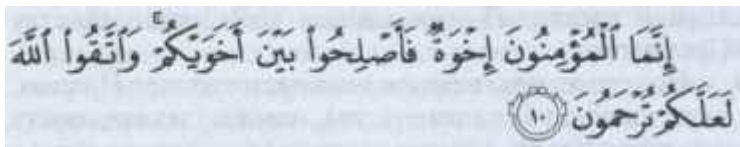 إِنَّمَا الْمُؤْمِنُونَ إِخْوَةٌ فَأَصْلِحُوا بَيْنَ أَخَوَيْكُمْ ۚ وَاتَّقُوا اللَّهَ
لَعَلَّكُمْ تُرْحَمُونَ ۝١٠